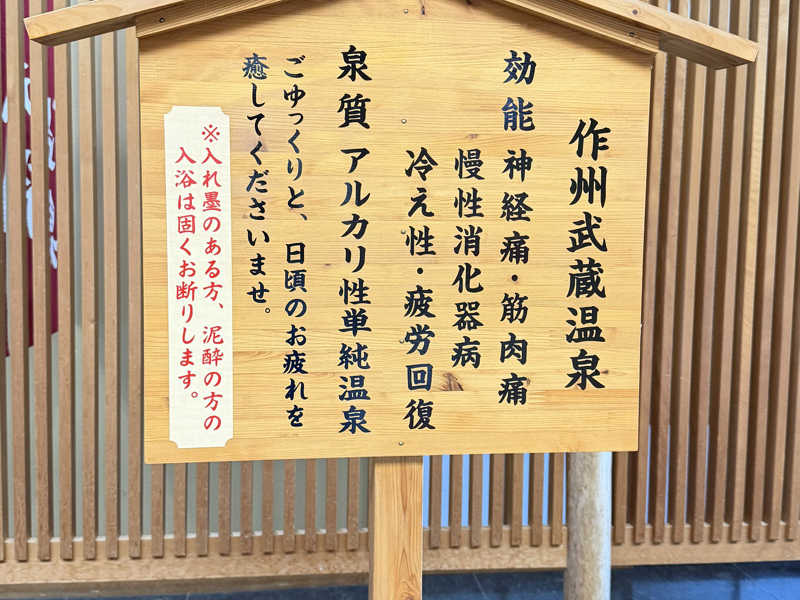 作州武蔵温泉
効能 神経痛・筋肉痛
慢性消化器病
冷え性・疲労回復
泉質 アルカリ性単純温泉
ごゆっくりと、日頃のお疲れを
癒してくださいませ。
※入れ墨のある方、泥酔の方の
入浴は固くお断りします。